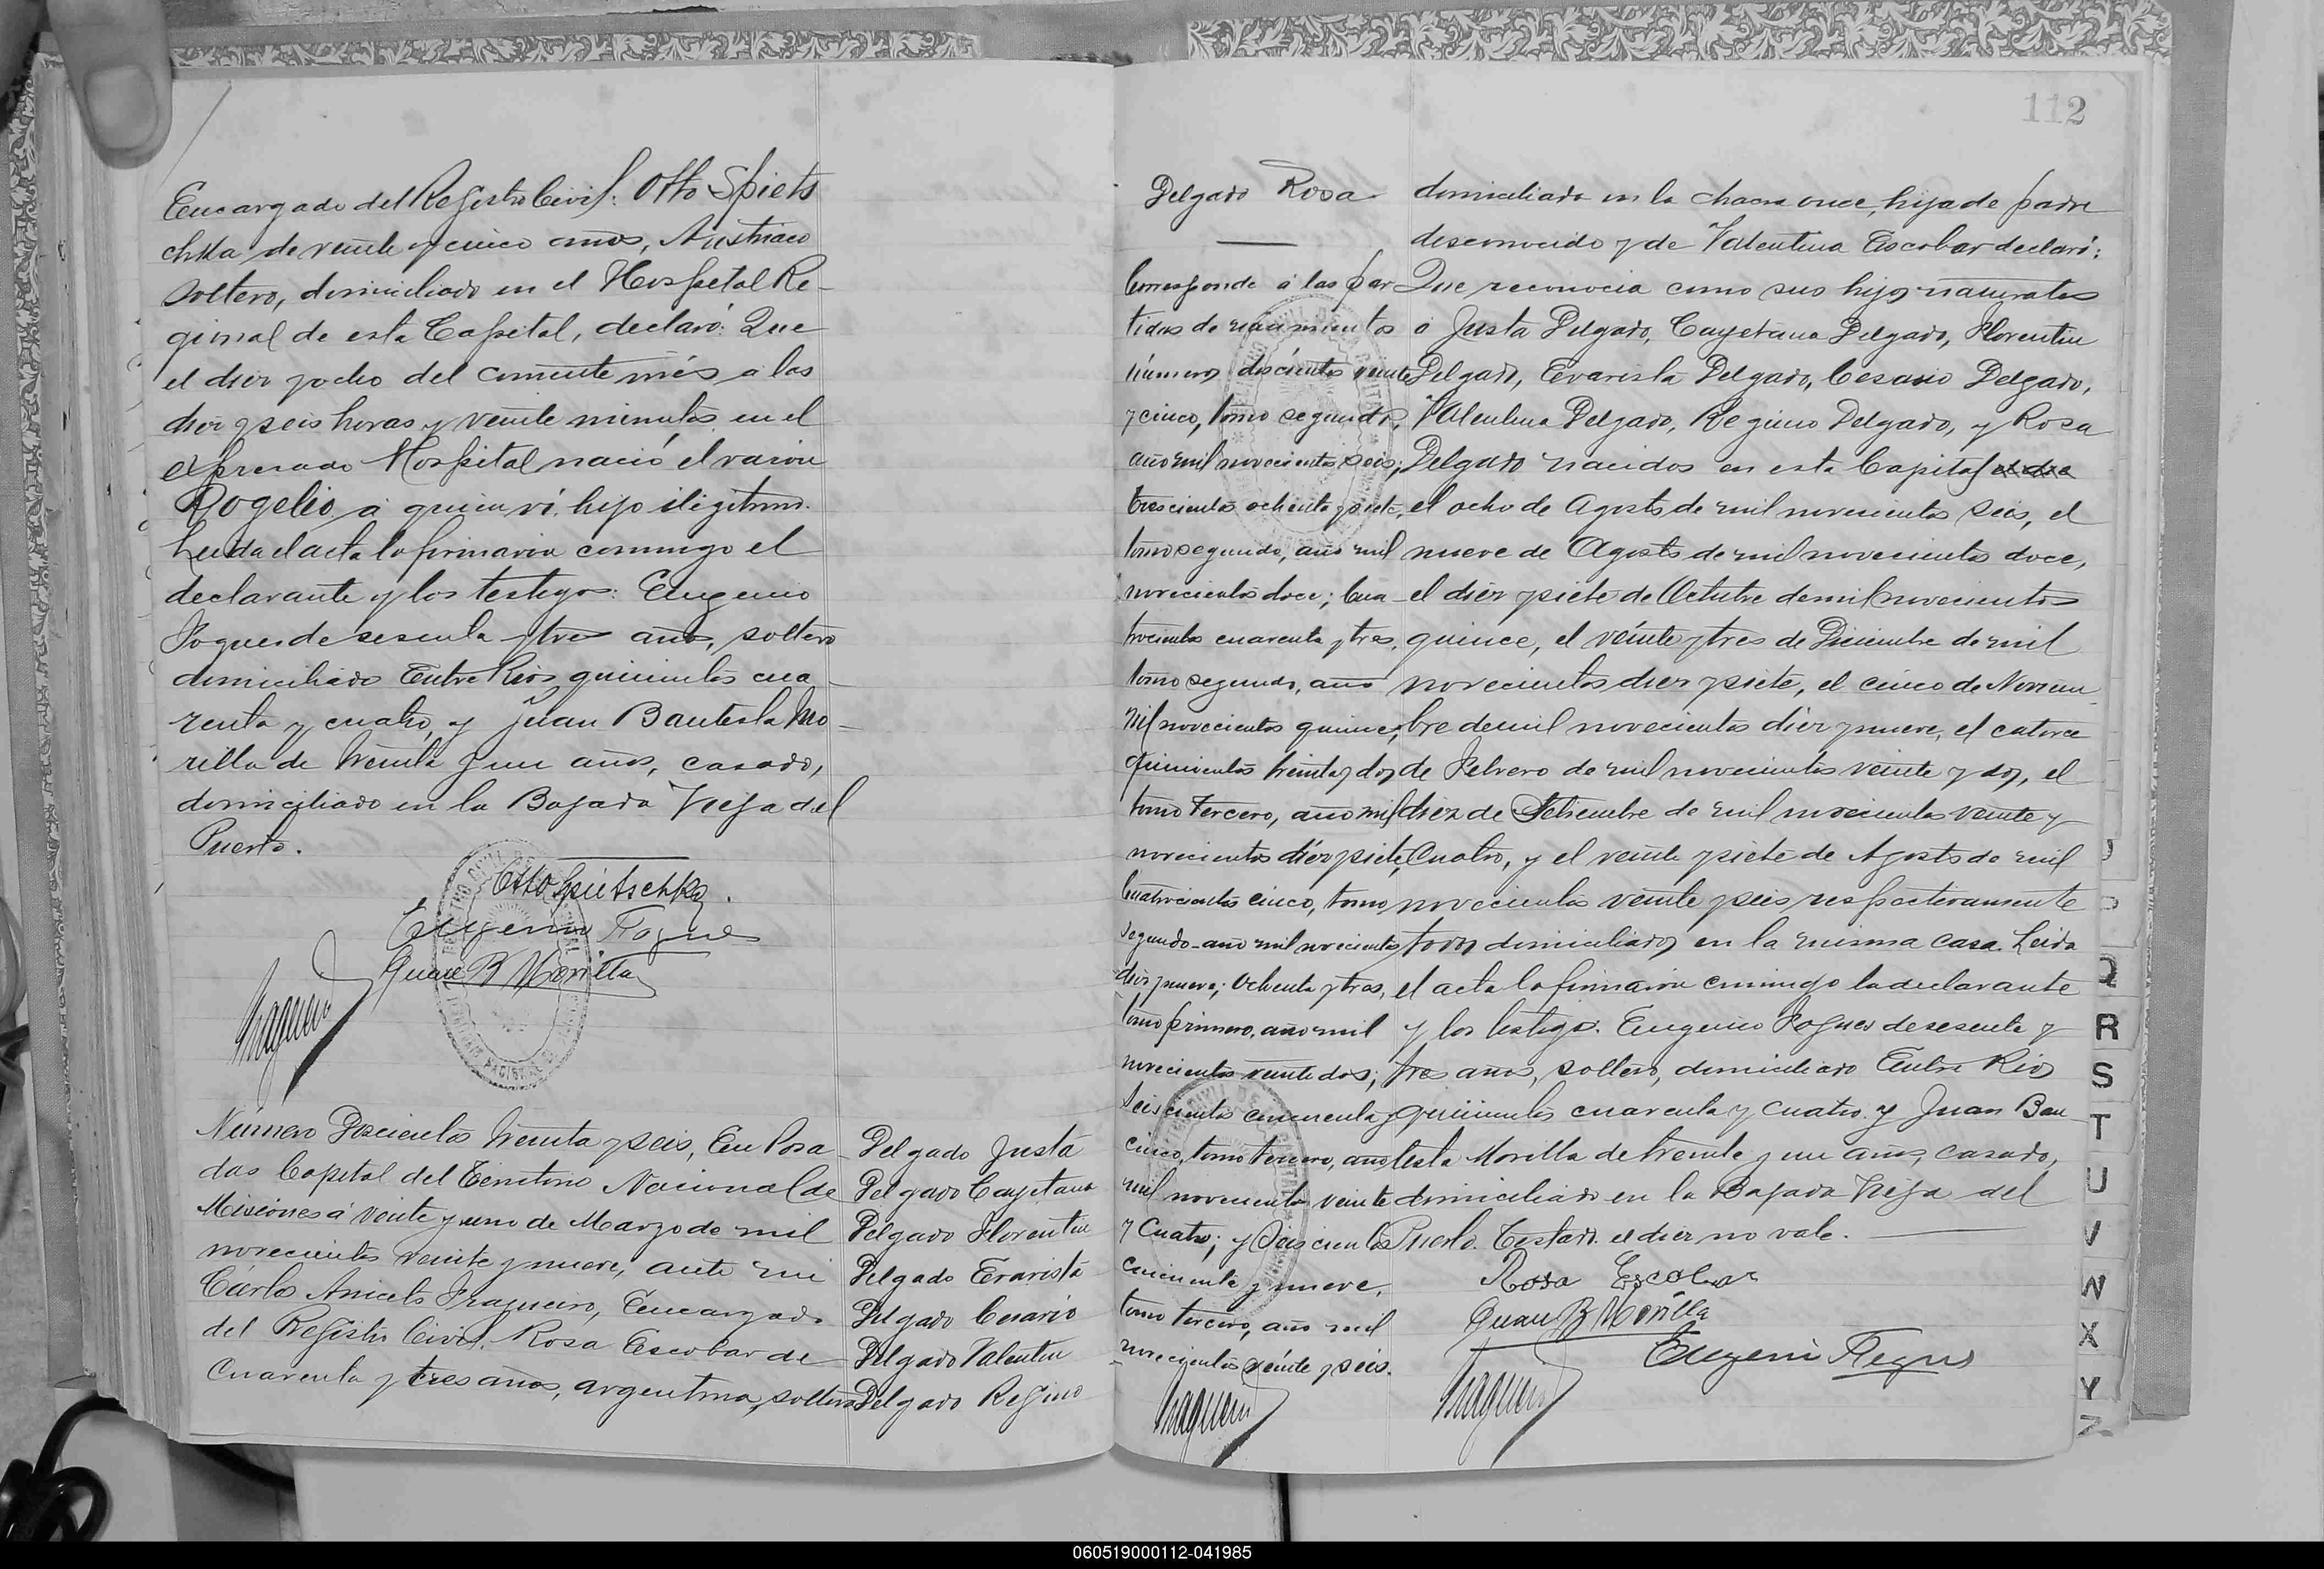 Encargado del Registro Civil: Otto Spiets
chka de veinte y cinco años, Austriaco
soltero, domiciliado en el Hospital Re-
gional de esta Capital, declaró: Que
el diez y ocho del corriente més a las
diez y seis horas y veinte minutos en el
expresado Hospital nació el varon
Rogelio a quien ví, hijo ilegitimo.
Leida el acta la firmaron conmigo el
declarante y los testigos: Eugenio
de sesenta y tres años, soltero
domiciliado Entre Rios quinientos cua-
renta y cuatro, y Juan Bautista Mo-
rilla de treinta y un años, casado,
domiciliado en la Bajada Vieja del
Puerto.
Otto Spietschka.
Eugenio
Juan B Morilla
Número Doscientos treinta y seis, En Posa-
das Capital del Territorio Nacional de
Misiones á veinte y uno de Marzo de mil
novecientos veinte y nueve, ante mi
Carlos Aniceto Encargado
del Registro Civil. Rosa Escobar de
cuarenta y tres años, argentina, soltera
Delgado Justa
Delgado Cayetana
Delgado Florentin
Delgado Evarista
Delgado Cesario
Delgado Valentin
Delgado Regino
112
Delgado Rosa
Corresponde á las par
tidas de nacimientos
números doscientos veinte
y cinco, tomo segundo,
año mil novecientos seis;
trescientos ochenta y siete,
tomo segundo, año mil
novecientos doce; Cua-
trocientos cuarenta y tres,
tomo segundo, año
mil novecientos quince;
quinientos treinta y dos
tomo tercero, año mil
novecientos diez y siete;
Cuatrocientos cinco, tomo
segundo año mil novecientos
diez y nueve; Ochenta y tres,
tomo primero, año mil
novecientos veinte dos;
Seiscientos cincuenta y
cinco, tomo tercero, año
mil novecientos veinte
y cuatro; y Seiscientos
cincuenta y nueve,
tomo tercero, año mil
novecientos veinte y seis.
domiciliada en la chacra once, hija de padre
desconocido y de Valentina Escobar declaró:
Que reconocia como sus hijos naturales
a Justa Delgado, Cayetana Delgado, Florentin
Delgado, Evarista Delgado, Cesario Delgado,
Valentina Delgado, Regino Delgado, y Rosa
Delgado nacidos en esta Capital
el ocho de Agosto de mil novecientos seis, el
nueve de Agosto de mil novecientos doce,
el diez y siete de Octubre de mil novecientos
quince, el veinte y tres de Diciembre de mil
novecientos diez y siete, el cinco de Noviem-
bre de mil novecientos diez y nueve, el catorce
de Febrero de mil novecientos veinte y dos, el
diez de Setiembre de mil novecientos veinte y
cuatro, y el veinte y siete de Agosto de mil
novecientos veinte y seis respectivamente
todos domiciliados en la misma casa. Leida
el acta la firmaron conmigo la declarante
y los testigos: Eugenio de sesenta y
tres años, soltero, domiciliado Entre Rios
quinientos cuarenta y cuatro y Juan Bau-
tista Morilla de treinta y un años, casado,
domiciliado en la Bajada Vieja del
Puerto. Testado el diez no vale.
Rosa Escobar
Juan B Morilla
Eugenio
Q
R
S
T
U
V
W
X
Y
Z
060519000112-041985